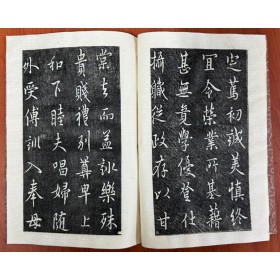 定篤初誠美慎終
宜令榮業所基藉
甚無竟學優登仕
攝職從政存以甘
棠去而益詠樂殊
貴賤禮別尊卑上
和下睦夫唱婦隨
外受傅訓入奉母